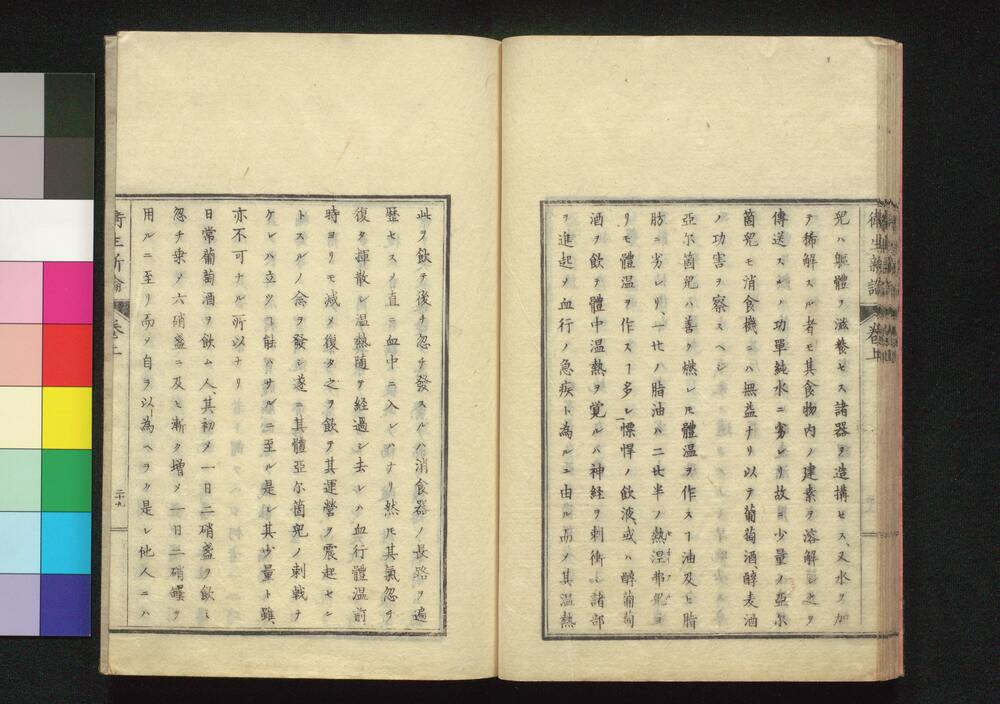 兒ハ軀體ヲ滋養セス諸器ヲ造搆セス、又水ヲ加
テ稀解スル者モ其食物内ノ建素ヲ溶解シ之ヲ
傳送スルノ功單純水ニ劣レリ故ニ少量ノ亞尓
箇兒モ消食機ニハ無益ナリ以テ葡萄酒、醇麦酒
ノ功害ヲ察スヘシ
亞尓箇兒ハ善ク燃レ𪜈體温ヲ作スヿ油及ヒ脂
肪ニ劣レリ、一世ノ脂油ハ二世半ノ熱涅弗兒ヨ
リモ體温ヲ作スヿ多シ慓悍ノ飲液、或ハ醇葡萄
酒ヲ飲テ體中温熱ヲ覚ルハ神経ヲ刺衝シ諸部
ヲ進起メ血行ノ急疾ト為ルニ由ル而メ其温熱
衛生新論 卷上
此ヲ飲テ後チ忽チ發スルハ消食器ノ長路ヲ遍
歴セスメ直ニ血中ニ入レハナリ然𪜈其氣忽ヲ
復タ揮散シ温熱随テ経過シ去レハ血行體温前
時ヨリモ减メ復タ之ヲ飲テ其運營ヲ震起セン
トスルノ念ヲ發シ遂ニ其體亞尓箇兒ノ刺戟ヲ
ケレハ立ツヿ能ハサルニ至ル是レ其少量ト雖
亦不可ナル所以ナリ
日常葡萄酒ヲ飲ム人、其初メ一日二硝盞ヲ飲ミ
忽チ乗メ六硝盞ニ及ヒ漸ク増メ一日二硝罎ヲ
用ルニ至リ而メ自ラ以為ヘラク是レ他人ニハ
衛生新論 卷上 二十九